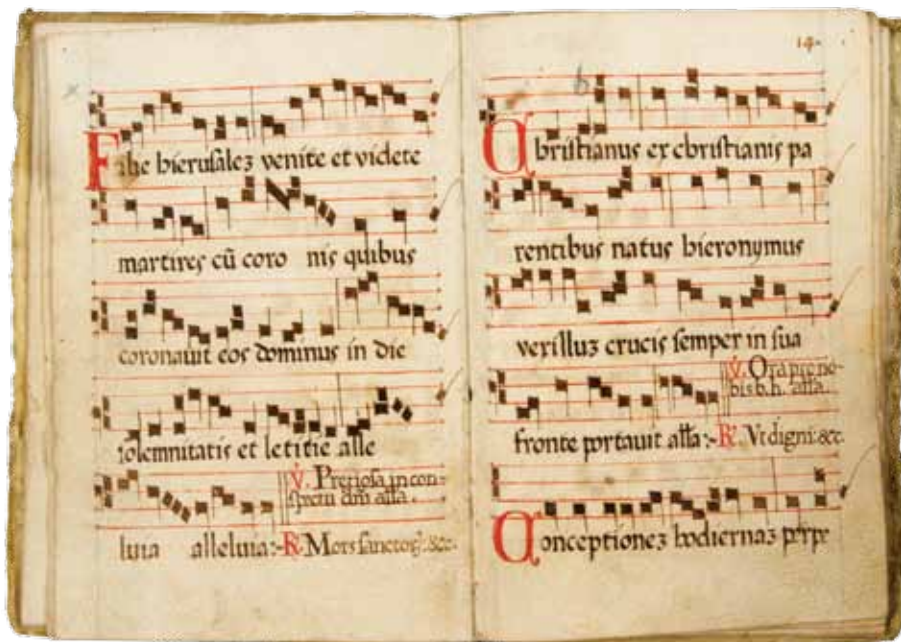 Filie hierusalez venite et videte
martires cū coro nis quibus
coronavit eos dominus in die
solemnitatis et letitie alle
V. Preciosa in con-
spectu dni alla.
luia alleluia:- R. Mors sanctoȝ. &c.
14.
b
Christianus ex christianis pa
rentibus natus hieronymus
vexilluz crucis semper in sua
V. Ora pro no-
bis b. h. alla.
fronte portavit alla:- R. Vt digni &c.
Conceptionez hodiernaz perpe